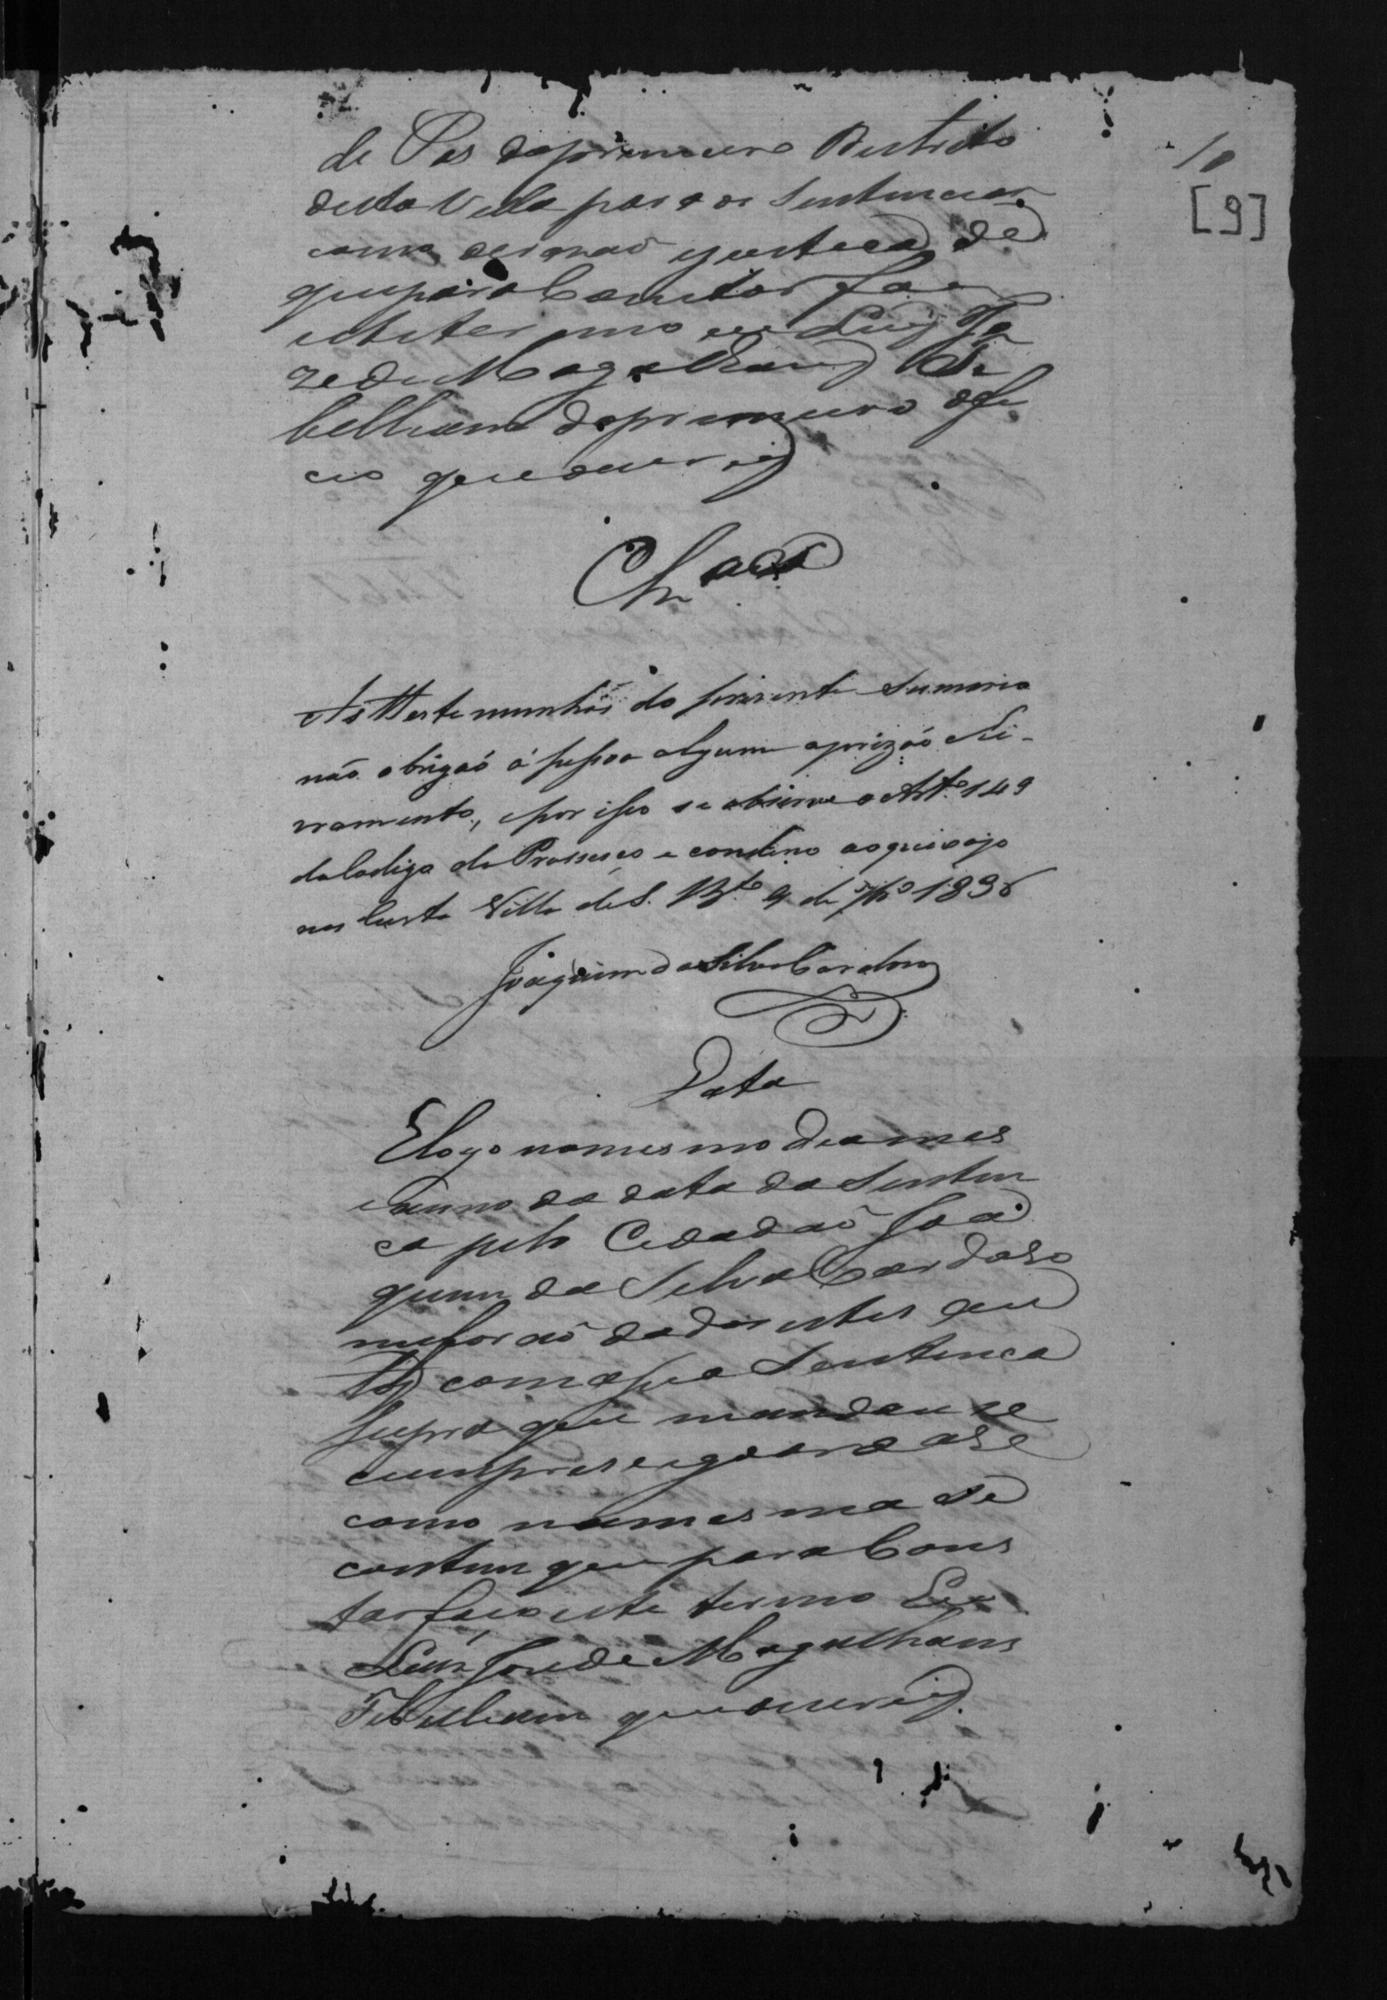 10
[9]
de Pas do primeiro Destrito
desta Villa para os Sentenciar
como de rezaõ e justica de
que para Constar faço
este termo eu Luiz Jo
ze de Magalhaens Ta
belliam do primeiro ofi
cio que o escrevi
Clzos
As testemunhas do prezente Sumario
não obrigaõ á pessoa alguma aprizaõ e li-
vramento, e por isso se observe o Artº 149
do Codigo do Prossesço e condeno ao queixozo
nas Custas Villa de S. Bto 9 de 7bro 1836
Joaquim da Silva Cardozo
Data
E logo no mesmo dia mes
e anno da data da Senten
ca pelo Cidadaõ Joa
quim da Silva Cardozo
me foraõ dados estes au
tos com a sua Sentenca
Supra que mandou se
cumprise e goardase
como na mesma se
contem que para Cons
tar faco este termo Eu
Luiz Joze de Magalhaens
Tabelliam que o escrevi.